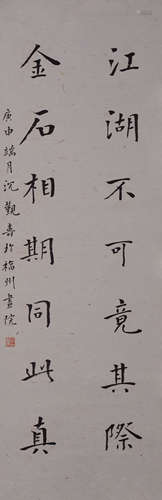 江湖不可竟其際
金石相期同此真
庚申端月沈觀壽於福州畫院